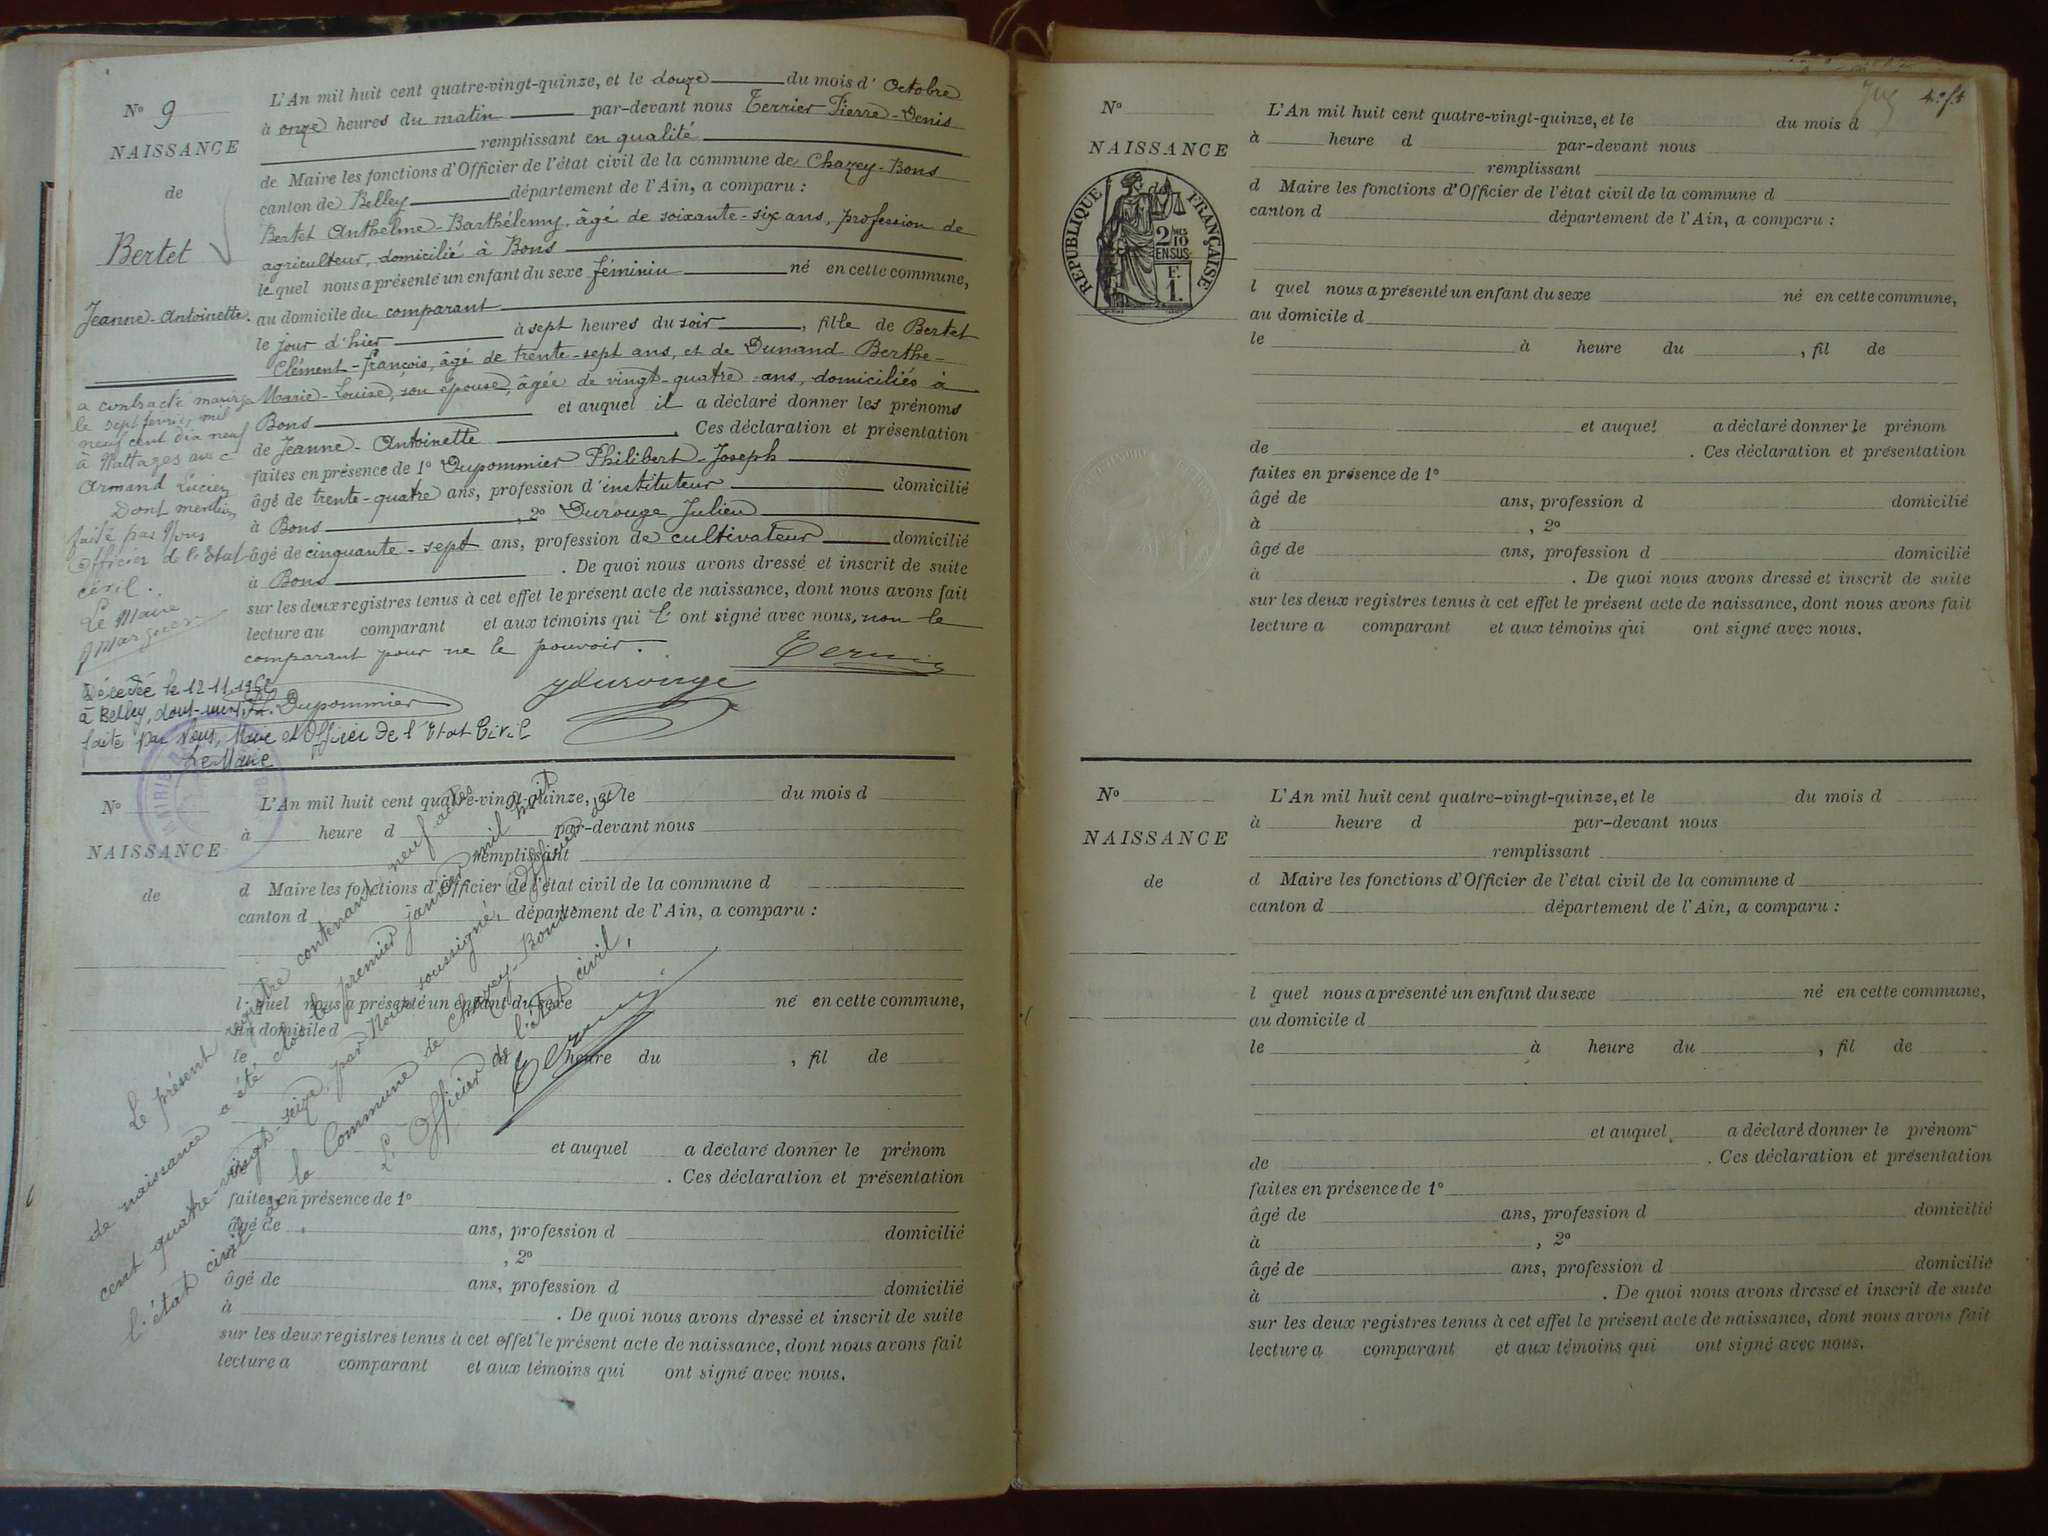 N° 9
NAISSANCE
de
Bertet
Jeanne-Antoinette.
L'An mil huit cent quatre-vingt-quinze, et le douze du mois d' Octobre
à onze heures du matin par-devant nous Terrier Pierre-Denis
remplissant en qualité
de Maire les fonctions d'Officier de l'état civil de la commune de Chazey-Bons
canton de Belley département de l'Ain, a comparu :
Bertet Anthelme-Barthélemy, âgé de soixante-six ans, profession de
agriculteur, domicilié à Bons
le quel nous a présenté un enfant du sexe féminin né en cette commune,
au domicile du comparant
le jour d'hier à sept heures du soir, fille de Bertet
Clément-françois, âgé de trente-sept ans, et de Dunand Berthe-
Marie-Louise, son épouse, âgée de vingt-quatre ans, domiciliés à
Bons et auquel il a déclaré donner les prénoms
de Jeanne-Antoinette. Ces déclaration et présentation
faites en présence de 1° Dupommier Philibert-Joseph
âgé de trente-quatre ans, profession d'instituteur domicilié
à Bons, 2° Durouge Julien
âgé de cinquante-sept ans, profession de cultivateur domicilié
à Bons. De quoi nous avons dressé et inscrit de suite
sur les deux registres tenus à cet effet le présent acte de naissance, dont nous avons fait
lecture au comparant et aux témoins qui l' ont signé avec nous, non le
comparant pour ne le pouvoir.
a contracté mariage
le sept février mil
neuf cent dix neuf
à Nattages avec
Armand Lucien
Dont mention
faite par Nous
Officier de l'Etat
civil.
Le Maire
Terrier
Jdurouge
Ph. Dupommier
Décédée le 12-11-196
à Belley, dont
faite par Nous, Maire et Officier de l'Etat Civil
Le Maire
MAIRIE
N°
NAISSANCE
de
L'An mil huit cent quatre-vingt-quinze, et le du mois d
à heure d par-devant nous
remplissant
d Maire les fonctions d'Officier de l'état civil de la commune d
canton d département de l'Ain, a comparu :
l quel nous a présenté un enfant du sexe né en cette commune,
au domicile d
le à heure du , fil de
et auquel a déclaré donner le prénom
de . Ces déclaration et présentation
faites en présence de 1°
âgé de ans, profession d domicilié
à , 2°
âgé de ans, profession d domicilié
à . De quoi nous avons dressé et inscrit de suite
sur les deux registres tenus à cet effet le présent acte de naissance, dont nous avons fait
lecture a comparant et aux témoins qui ont signé avec nous.
Le présent registre contenant neuf actes
de naissance a été clos le premier janvier mil huit
cent quatre-vingt-seize, par Nous soussigné, Officier de
l'état civil de la Commune de Chazey-Bons.
L'Officier de l'état civil,
Terrier
N°
NAISSANCE
RÉPUBLIQUE FRANÇAISE
2/10
EN SUS
F.
1.
L'An mil huit cent quatre-vingt-quinze, et le du mois d
à heure d par-devant nous
remplissant
d Maire les fonctions d'Officier de l'état civil de la commune d
canton d département de l'Ain, a comparu :
l quel nous a présenté un enfant du sexe né en cette commune,
au domicile d
le à heure du , fil de
et auquel a déclaré donner le prénom
de . Ces déclaration et présentation
faites en présence de 1°
âgé de ans, profession d domicilié
à , 2°
âgé de ans, profession d domicilié
à . De quoi nous avons dressé et inscrit de suite
sur les deux registres tenus à cet effet le présent acte de naissance, dont nous avons fait
lecture a comparant et aux témoins qui ont signé avec nous.
N°
NAISSANCE
de
L'An mil huit cent quatre-vingt-quinze, et le du mois d
à heure d par-devant nous
remplissant
d Maire les fonctions d'Officier de l'état civil de la commune d
canton d département de l'Ain, a comparu :
l quel nous a présenté un enfant du sexe né en cette commune,
au domicile d
le à heure du , fil de
et auquel a déclaré donner le prénom
de . Ces déclaration et présentation
faites en présence de 1°
âgé de ans, profession d domicilié
à , 2°
âgé de ans, profession d domicilié
à . De quoi nous avons dressé et inscrit de suite
sur les deux registres tenus à cet effet le présent acte de naissance, dont nous avons fait
lecture a comparant et aux témoins qui ont signé avec nous.